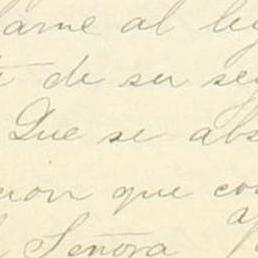 lame al le
de su se
Que se abs
cion que co
Señora